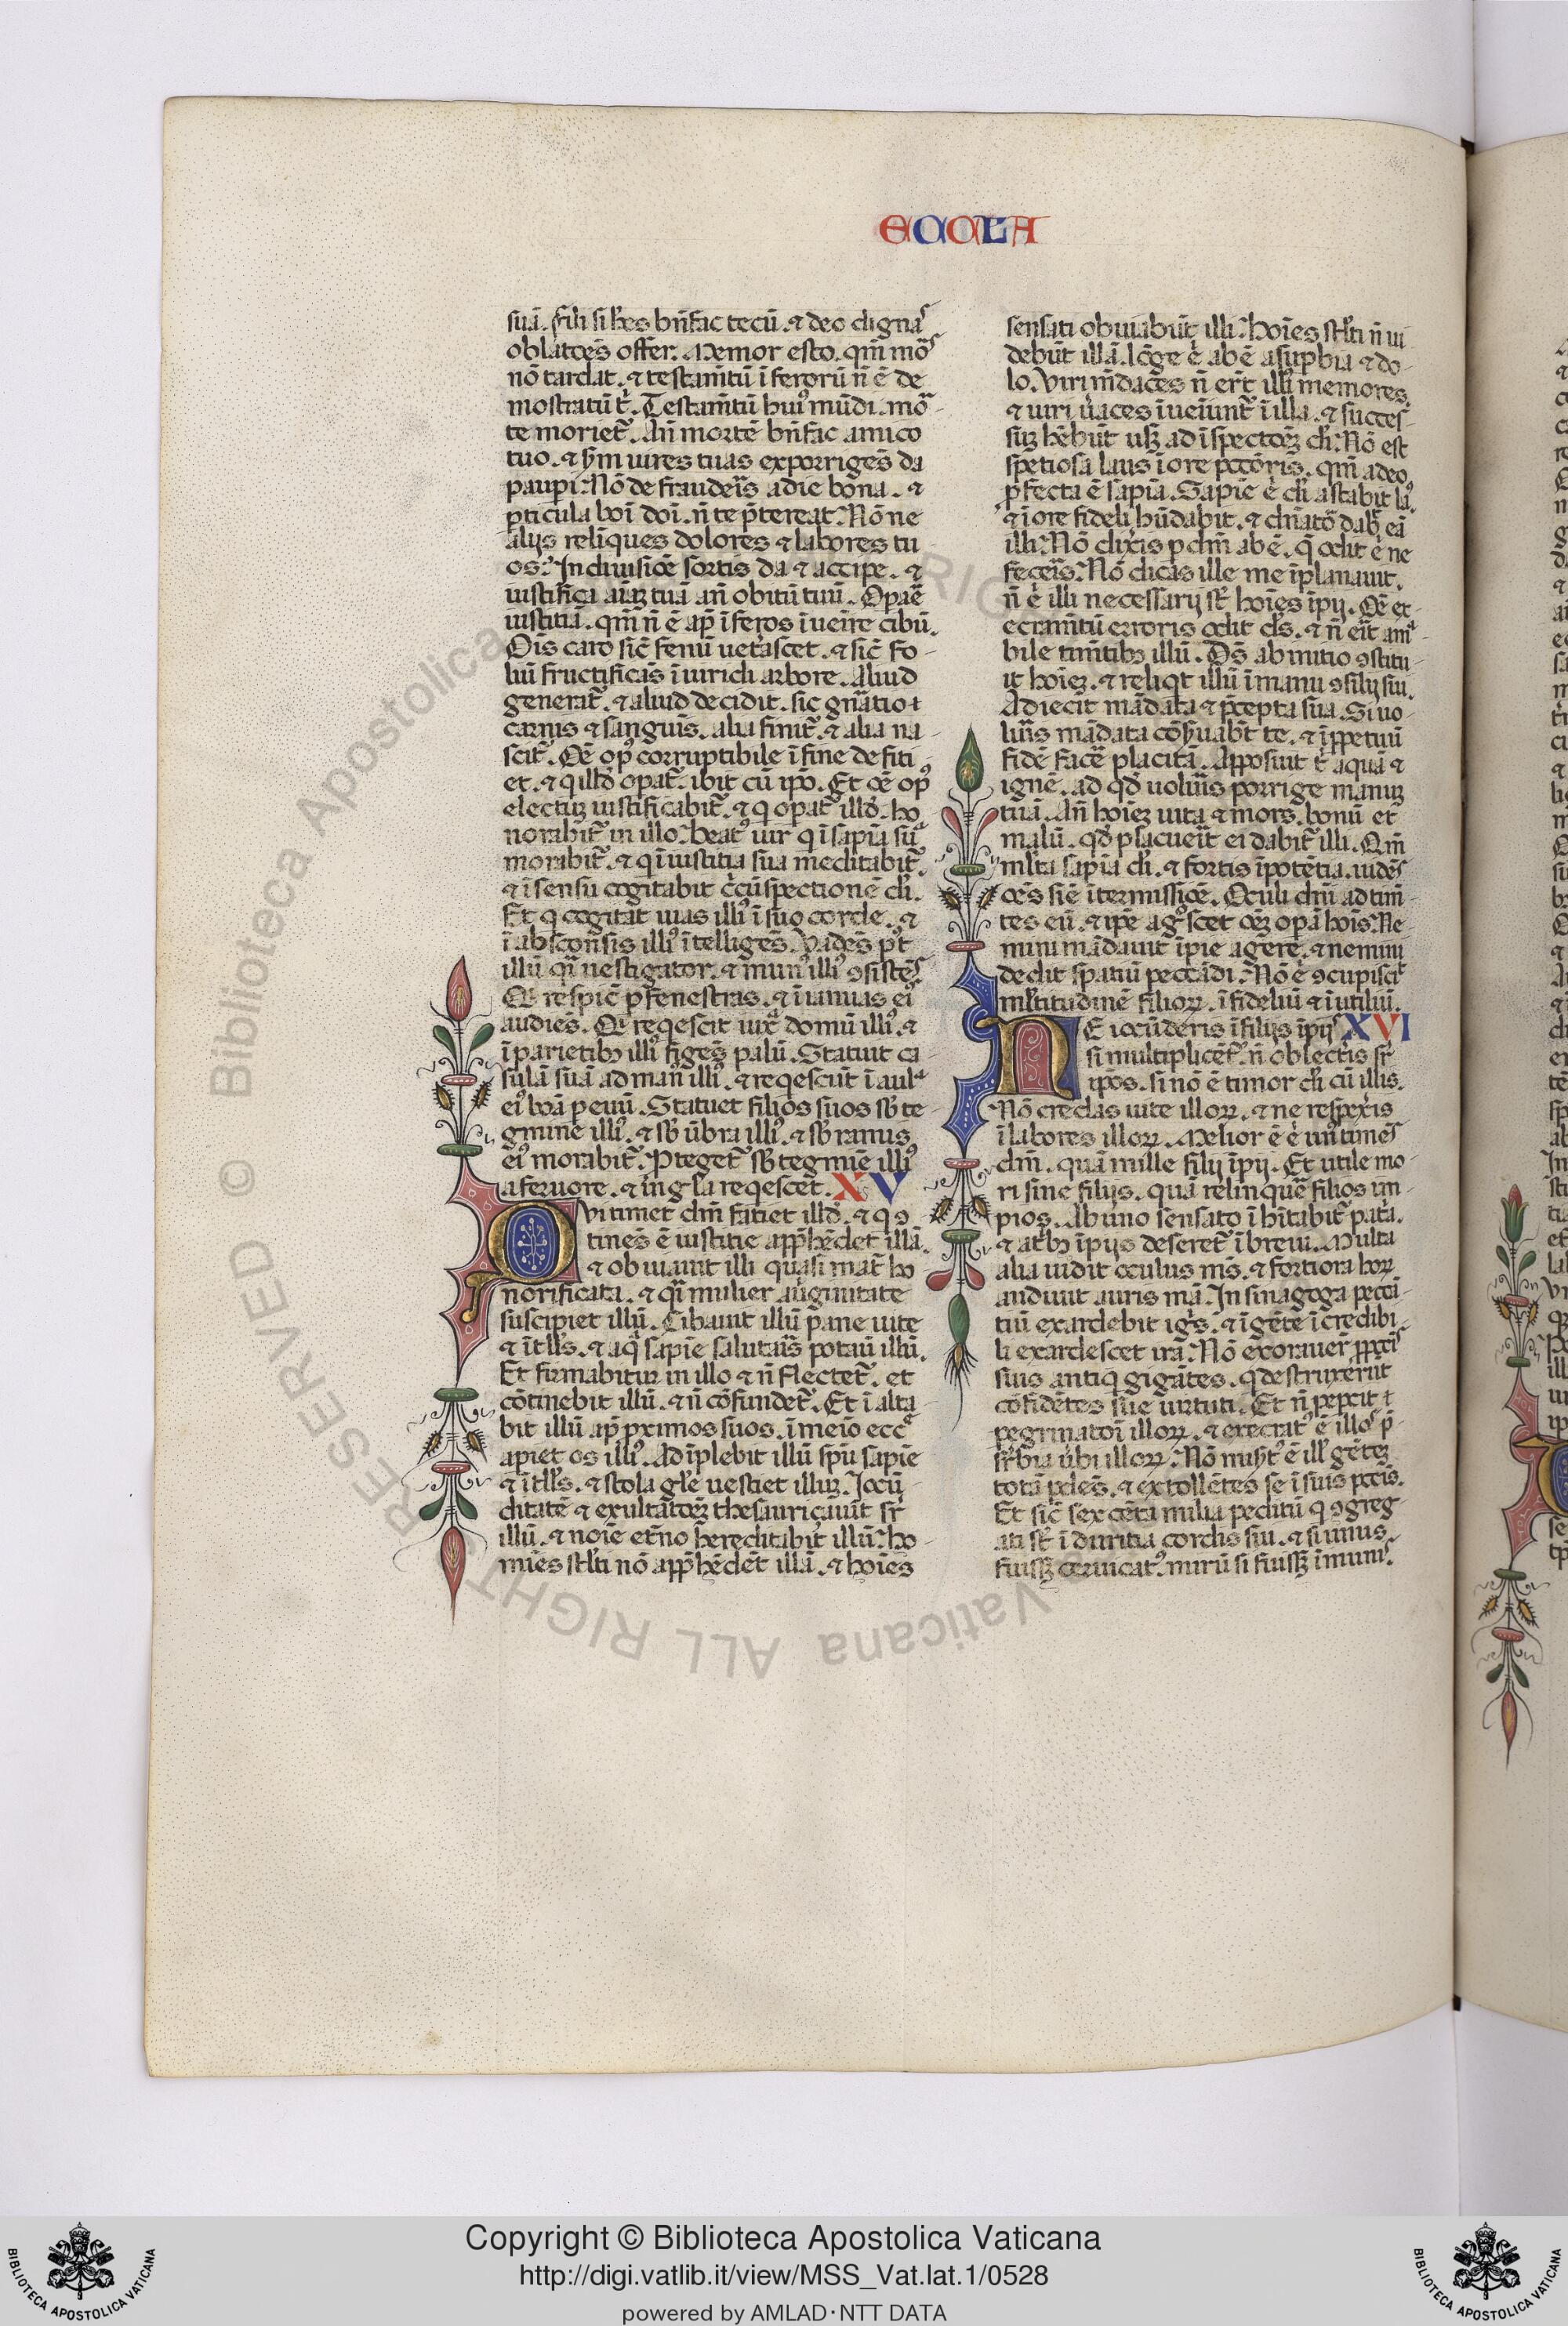 ECCLA
suā. Fili si hēs bn̄fac tecū. ⁊ deo dignaˢ
oblatōēs offer. Memor esto. qm̄ moˢ
nō tardat. ⁊ testam̄tū ī feroꝝ n̄ ē de
mostratū t̄. Testam̄tū huiꝰ mūdi. mō-
te moriet᷑. An̄ mortē bn̄fac amico
tuo. ⁊ sm̄ uires tuas exporrigēs da
paupi. Nō de frauderis a die bona. ⁊
pticula boī doī. n̄ te p̄tereat. Nō ne
alijs relīques dolores ⁊ labores tu
os. In diuisiōe sortis da ⁊ accipe. ⁊
iustifica aīaꝫ tuā an̄ obitū tuū. Opaē
iustitiā. qm̄ n̄ ē ap̄ īferos īuenīre cibū.
Oīs caro sic̄ fenū ueterascet. ⁊ sic̄ fo-
liū fructificās ī uiridi arbore. Aliud
generat᷑. ⁊ aliud decidit. sic gn̄atio ⁊
carnis ⁊ sanguīs. alia finit᷑. ⁊ alia na-
scit᷑. Oē opꝰ corruptibile ī fine defiti
et. ⁊ q illd̄ opat᷑. ibit cū ip̄o. Et oē opꝰ
electuꝫ iustificabit᷑. ⁊ q opat᷑ illd̄. ho
norabit᷑ in illo. beatꝰ uir q ī sapīa suᵃ
morabit᷑. ⁊ q ī iustitia sua meditabit᷑.
⁊ ī sensu cogitabit c̄cūspectionē di.
Et q cogitat uias illiꝰ ī suo corde. ⁊
ī abscōnsis illiꝰ ītelligēs. Uadēs p̄t
illū q̄i uestigator. ⁊ ī uiis illiꝰ ꝯsistēˢ
Qi respic̄ p fenestras. ⁊ ī ianuas eiꝰ
audiēs. Qi reqescit iux̄ domū illiꝰ. ⁊
ī parietibꝫ illiꝰ figēs palū. Statuit ca-
sulā suā ad man̄ illiꝰ. ⁊ reqescūt ī aulᵃ
eiꝰ boā p euū. Statuet filios suos sb̄ te-
gmine illiꝰ. ⁊ sb̄ ūbra illiꝰ. ⁊ sb̄ ramis
eiꝰ morabit᷑. Pteget᷑ sb̄ tegmīe illiꝰ
a feruore. ⁊ in gl̄a reqescet. XV
Qvi timet dm̄ fatiet illd̄. ⁊ q ꝯ
tinēs ē iustitie app̄hēdet illā.
⁊ obuiauit illi quasi mat᷑ ho
norificata. ⁊ q̄i mulier auirginitate
suscipiet illū. Cibauit illū pane uite
⁊ ītll̄s. ⁊ aq̄ sapīe salutaris potauit illū.
Et firmabitur in illo ⁊ n̄ flectet᷑. et
cōtinebit illū. ⁊ n̄ cōfundet᷑. Et ī alta
bit illū ap̄ pximos suos. ī meīo eccᵉ
apiet os illiꝰ. Ad īplebit illū sp̄u sapīe
⁊ ītll̄s. ⁊ stola gl̄e uestiet illuꝫ. Iocū-
ditatē ⁊ exultatōeꝫ thesauriçauit sr̄
illū. ⁊ noīe et̄no hereditabit illū. ho-
mies stl̄ti nō app̄hēdēt illā. ⁊ hoīes
sensati obuiabūt illi. hoīes stl̄ti n̄ ui
debūt illā. lōge ē abē a supbia ⁊ do-
lo. Viri m̄daces n̄ er̄t illiꝰ memores.
⁊ uiri ūaces īueīunt᷑ ī illa. ⁊ succes-
suꝫ hēbūt usꝫ ad īspectōeꝫ di. Nō est
spetiosa laus ī ore pccōris. qm̄ a deo
pfecta ē sapīa. Sapīe ē di astabit laꝰ.
⁊ ī ore fideli hūdabit. ⁊ dn̄atoʳ dabit eā
illi. Nō dixis p dm̄ abē. q̄ odit ē ne
feceis. Nō dicas ille me īplanauit.
n̄ ē illi necessarij st̄ hoīes īpij. Oē ex-
ecram̄tū erroris odit ds̄. ⁊ n̄ erit amᵃ-
bile tim̄tibꝫ illū. Ds̄ ab initio ꝯstitu-
it hoīeꝫ. ⁊ reliqt illū ī manu ꝯsilij sui.
Adiecit mādata ⁊ p̄cepta sua. Si uo-
luīs mādata cōs̄uabt̄ te. ⁊ ī ppetuū
fidē facē placitā. Apposuit t̄ aquā ⁊
ignē. ad qd̄ uoluīs porrige manuꝫ
tuā. An̄ hoīeꝫ uita ⁊ mors. bonū et
malū. qd̄ placueīt ei dabit᷑ illi. Qm̄
ml̄ta sapīa di. ⁊ fortis ī potētia. uidēˢ
oēs siē ītermissiōe. Oculi dm̄ ad tim̄-
tes eū. ⁊ ip̄e agꝰscet oēꝫ opā hoīs. Ne-
mini mādauit īpie agere. ⁊ nemini
dedit spatiū peccādi. Nō ē ꝯcupiscit
ml̄titudinē filioꝝ. ī fideliū ⁊ ī utiliū.
NE iocūderis ī filijs īpijˢ XVI
si multiplicēt᷑. n̄ oblectīs sr̄
ip̄os. si nō ē timor di cū illis.
Nō credas uite illoꝝ. ⁊ ne respexis
ī labores illoꝝ. Melior ē ē unꝰ timēˢ
dm̄. quā mille filij īpij. Et utile mo-
ri sine filijs. quā relinquē filios im-
pios. Ab uno sensato ī hitabit᷑ pata.
⁊ at᷑bꝫ īpijs deseret᷑ ī breui. Multa
alia uidit oculus ms̄. ⁊ fortiora hoꝝ
audiuit auris mā. In sinagoga pecca-
tiū exardebit igs̄. ⁊ ī gēte īcredibi
li exardescet ira. Nō exorauer̄ p pctīˢ
suis antiq gigātes. q destruxerūt
cōfidētes sue uirtuti. Et n̄ pepcit ⁊
pegrinatoī illoꝝ. ⁊ execratꝰ ē illoˢ p̄-
sr̄bia ūbi illoꝝ. Nō misͬtꝰ ē illiˢ gēteꝫ
totā pdēs. ⁊ extollētes se ī suis pctīs.
Et sic̄ sex cēta milia peditū q ꝯgreg
ati st̄ ī duritia cordis sui. ⁊ si unus
fuissꝫ ceruicatꝰ. mirū si fuissꝫ īmuniˢ.
Copyright © Biblioteca Apostolica Vaticana
http://digi.vatlib.it/view/MSS_Vat.lat.1/0528
powered by AMLAD·NTT DATA
BIBLIOTECA APOSTOLICA VATICANA
BIBLIOTECA APOSTOLICA VATICANA
© Biblioteca Apostolica Vaticana ALL RIGHT RESERVED